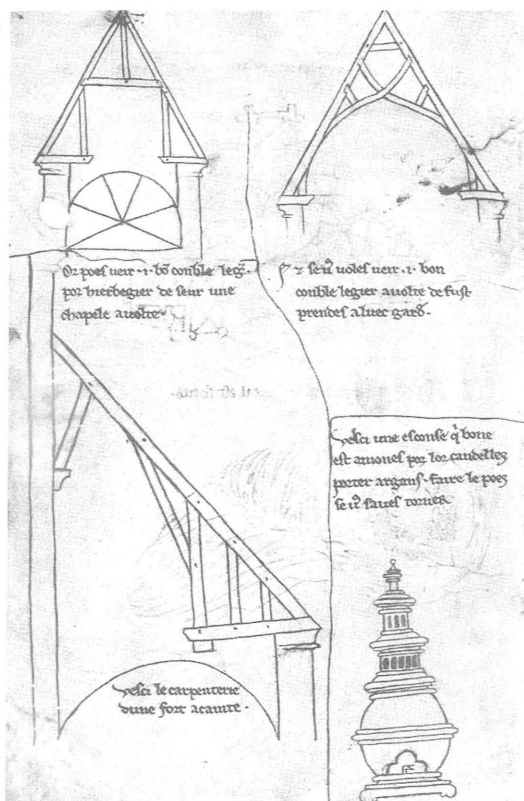 Or poes veir .i. bō conble legr.
por hierbegier de seur une
chapele avolte.
Et se vˢ voles veir .i. bon
conble legier avolte de fust
prendes aluec gard.
vesci une esconse q̇ bone
est amones por lor candelles
porter argans. faire le poes
se vˢ saves torner
vesci le carpenterie
dune fort acainte.